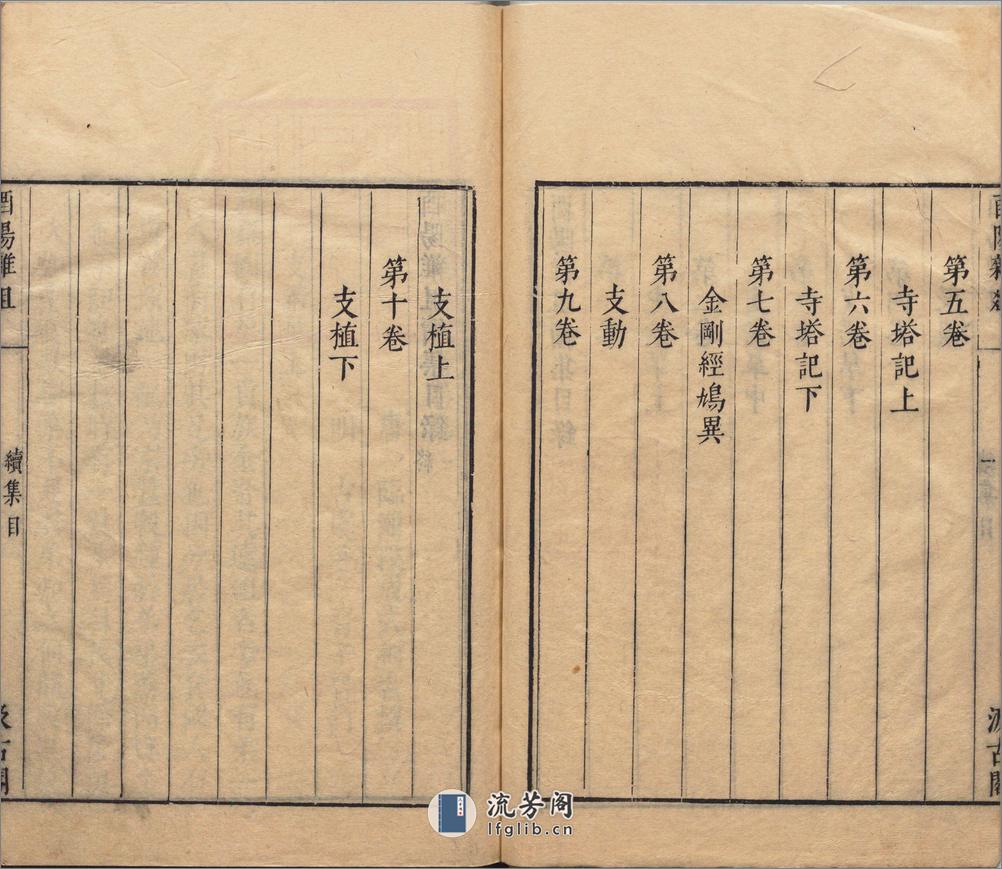 酉陽雜俎
一
汲古閣
第五卷
寺塔記上
第六卷
寺塔記下
第七卷
金剛經鳩異
第八卷
支動
第九卷
支植上
第十卷
支植下
酉陽雜俎
續集目
汲古閣
流芳阁
lfglib.cn